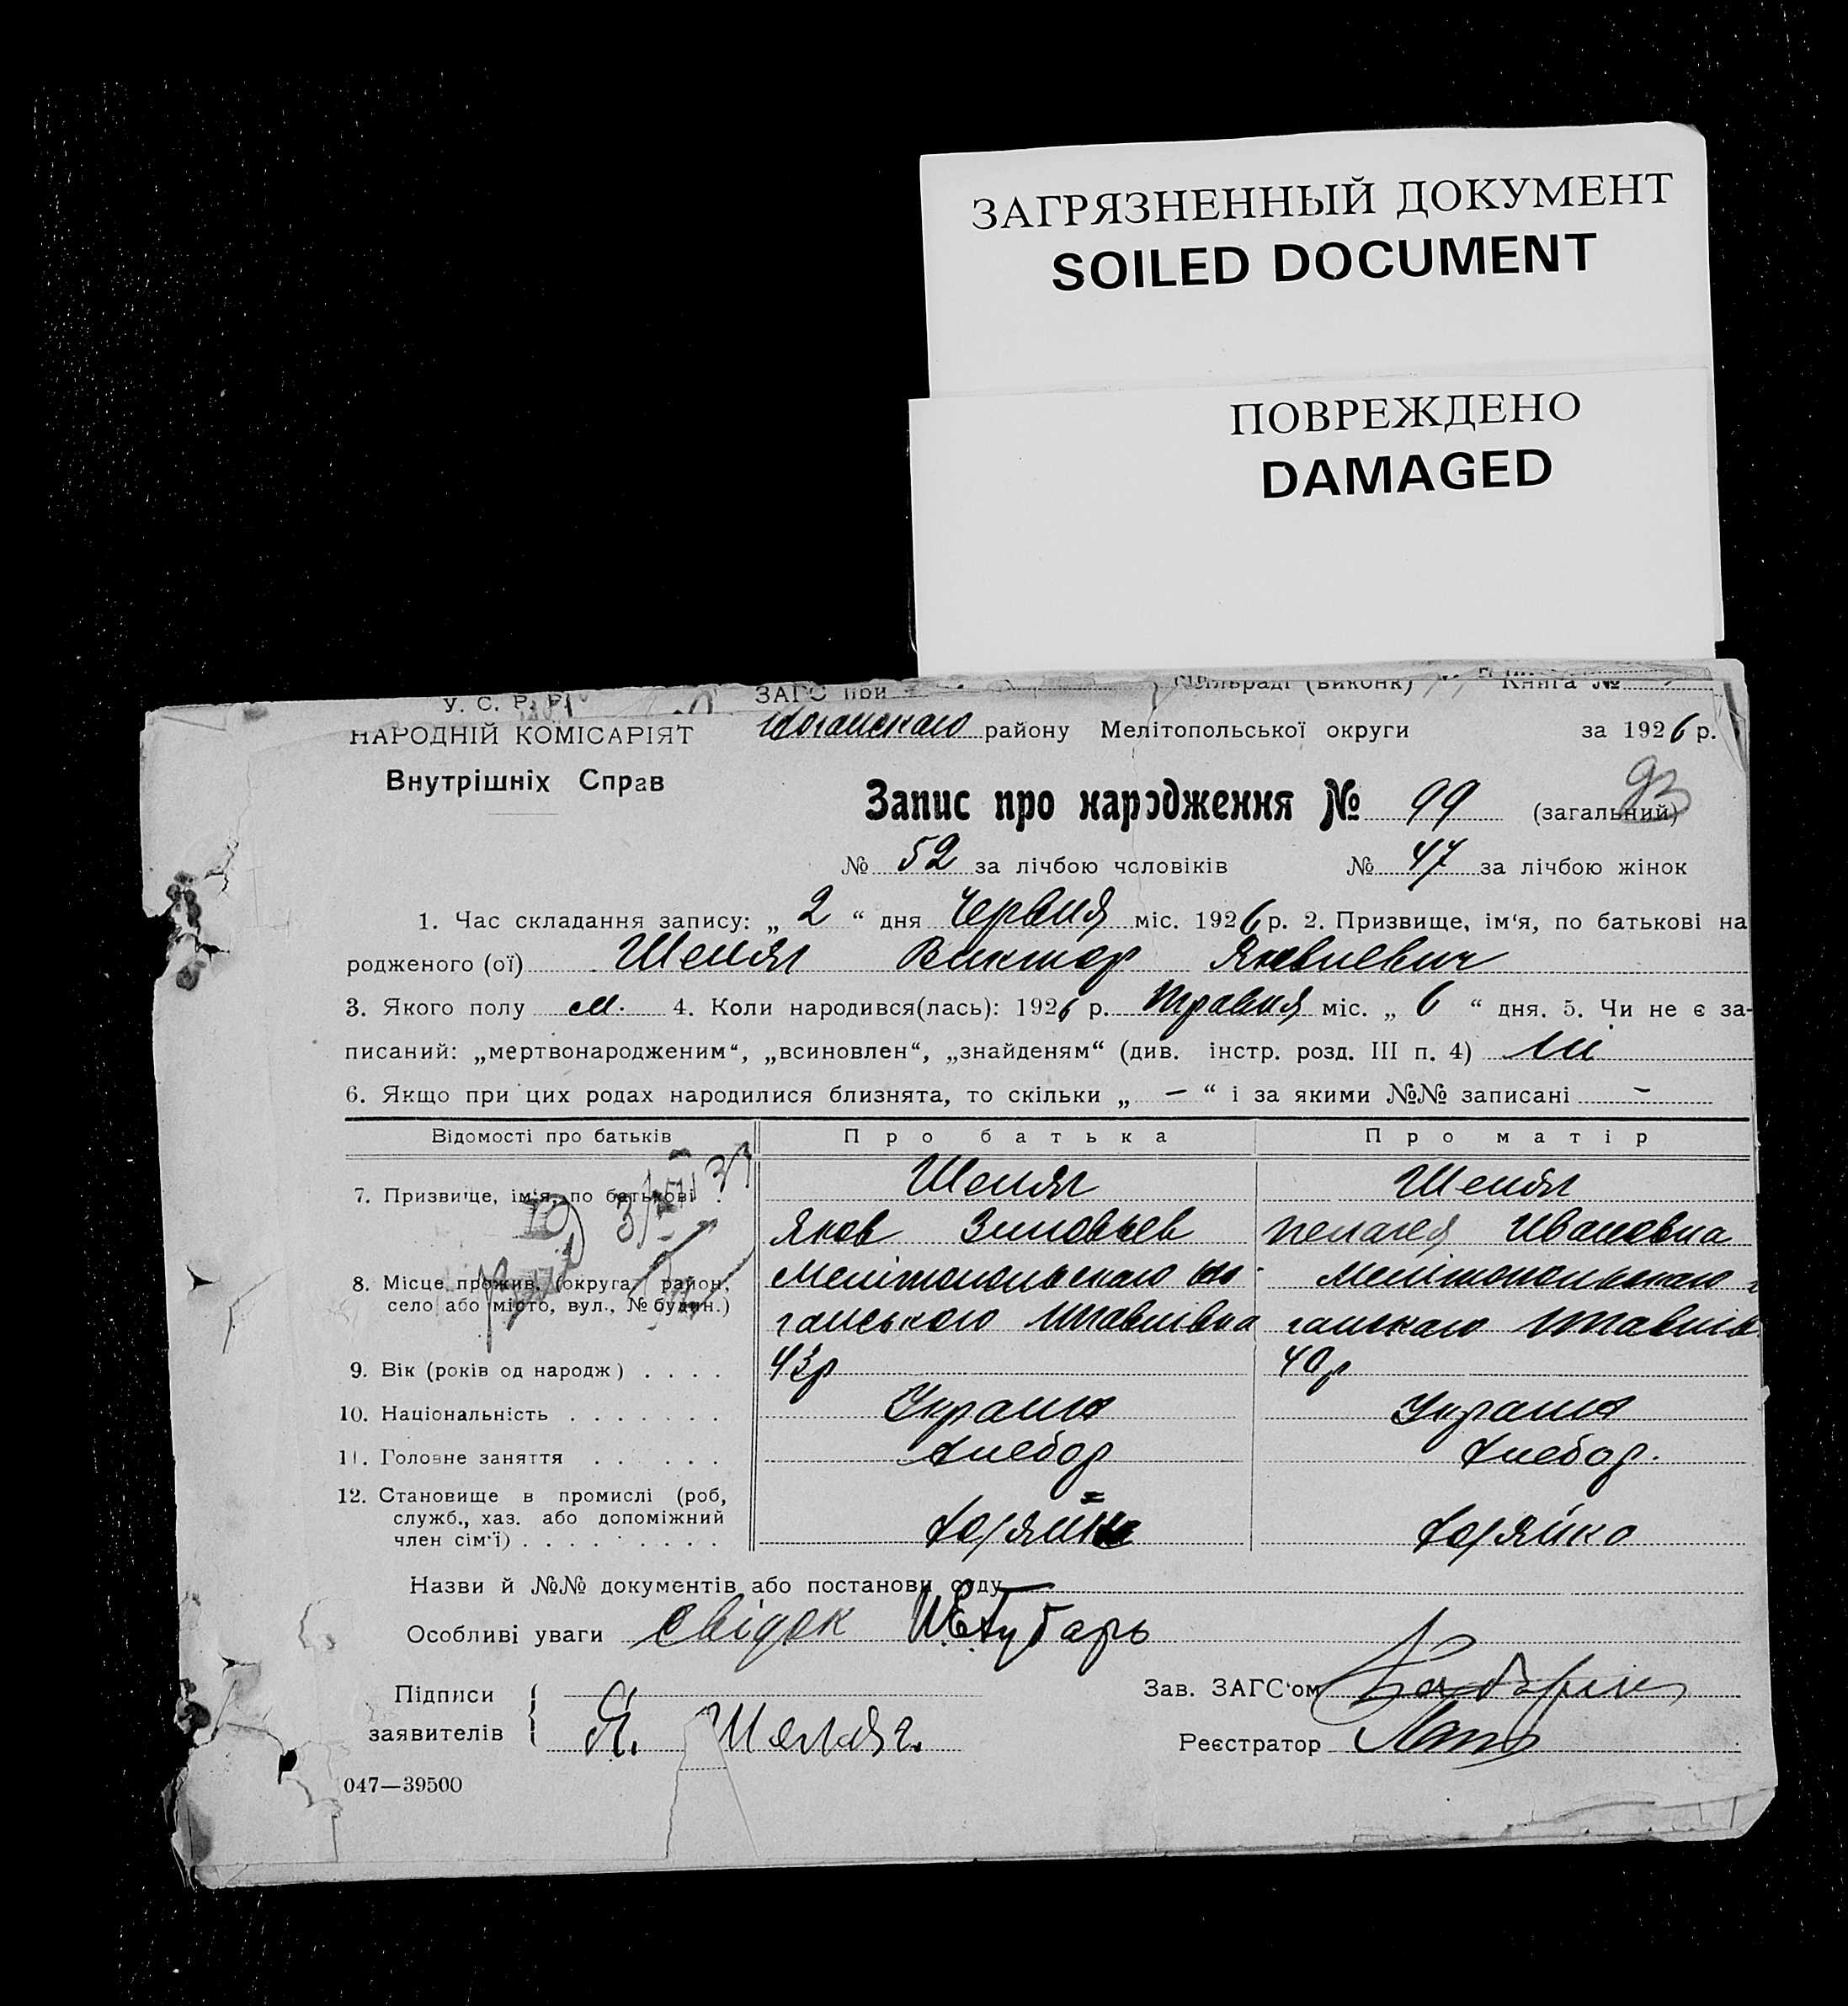 ЗАГРЯЗНЕННЫЙ ДОКУМЕНТ
SOILED DOCUMENT
ПОВРЕЖДЕНО
DAMAGED
У. С. Р. Р. ЗАГС при сільраді (виконк) Книга №
НАРОДНІЙ КОМІСАРІЯТ району Мелітопольської округи за 1926 р.
Внутрішніх Справ
93
Запис про народження № 99 (загальний)
№ 52 за лічбою чоловіків № 47 за лічбою жінок
1. Час складання запису: „ 2 “ дня Червня міс. 1926 р. 2. Призвище, ім‘я, по батькові на
родженого (ої) Шеляг Виктор Яковлевич
3. Якого полу м. 4. Коли народився(лась): 1926 р. Травня міс. „ 6 “ дня. 5. Чи не є за-
писаний: „мертвонародженим“, „всиновлен“, „знайденям“ (див. інстр. розд. III п. 4) ні
6. Якщо при цих родах народилися близнята, то скільки „ — “ і за якими №№ записані —
Відомості про батьків Про батька Про матір
7. Призвище, ім‘я, по батькові Шеляг Шеляг
Яков Зиновьев Пелагея Ивановна
8. Місце прожив. (округа, район, Мелітопольскаго Мелітопольскаго
село або місто, вул., № будин.) ганського ганскаго
9. Вік (років од народж) . . . . 43р 40р
10. Національність . . . . . . . Украин Украин
11. Головне заняття . . . . . Хлебор Хлебор.
12. Становище в промислі (роб,
служб., хаз. або допоміжний
член сім‘ї) . . . . . . . . . Хозяйка
Назви й №№ документів або постанови суду —
Особливі уваги Свідок
Підписи Зав. ЗАГС‘ом
заявителів Я. Шеляг. Реєстратор
047—39500